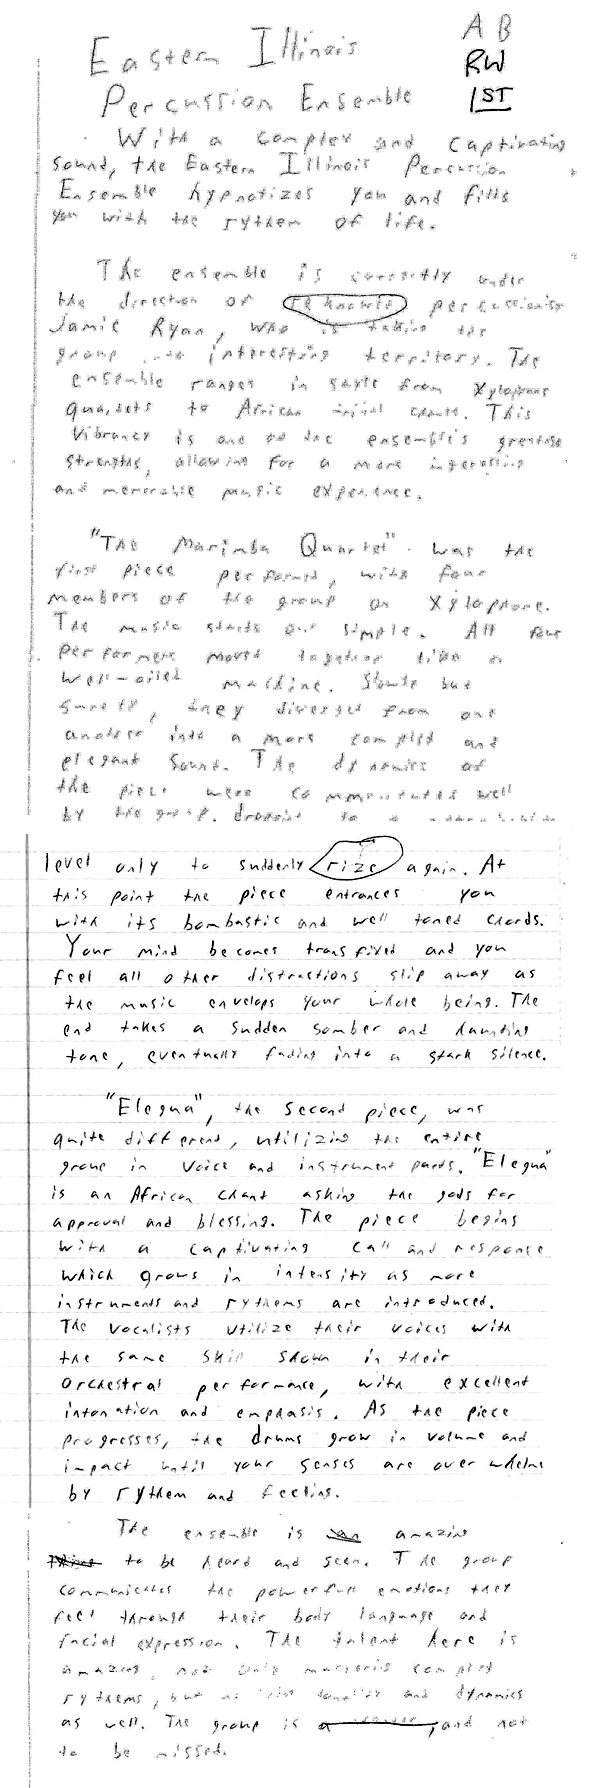 Eastern Illinois
A B
RW
1ST
Percussion Ensemble
With a complex and captivating
sound, the Eastern Illinois Percussion
Ensemble hypnotizes you and fills
you with the rythem of life.
The ensemble is currently under
the direction of percussionist
Jamie Ryan, who is taking the
group into interesting territory. The
ensemble ranges in style from xylophone
quartets to African chants. This
vibrancy is one of the ensemble's greatest
strengths, allowing for a more interesting
and memorable music experience.
"The Marimba Quartet" was the
first piece performed, with four
members of the group on xylophone.
The music starts out simple. All four
performers moved together like a
well-oiled machine. Slowly but
surely, they diverged from one
another into a more complex and
elegant sound. The dynamics of
the piece were communicated well
by the group, to a
level only to suddenly rize again. At
this point the piece entrances you
with its bombastic and well toned chords.
Your mind becomes transfixed and you
feel all other distractions slip away as
the music envelops your whole being. The
end takes a sudden somber and haunting
tone, eventually fading into a stark silence.
"Elegua", the second piece, was
quite different, utilizing the entire
group in voice and instrument parts. "Elegua"
is an African chant asking the gods for
approval and blessing. The piece begins
with a captivating call and response
which grows in intensity as more
instruments and rythems are introduced.
The vocalists utilize their voices with
the same skill shown in their
orchestral performance, with excellent
intonation and emphasis. As the piece
progresses, the drums grow in volume and
impact until your senses are overwhelm
by rythem and feeling.
The ensemble is amazing
to be heard and seen. The group
communicates the powerfull emotions they
feel through their body language and
facial expression. The talent here is
amazing, not only complex
rythems, but and dynamics
as well. The group is a , and not
to be missed.